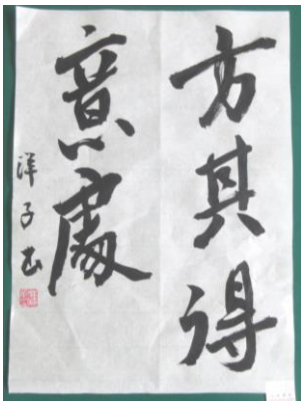 方其得
意處
洋子书